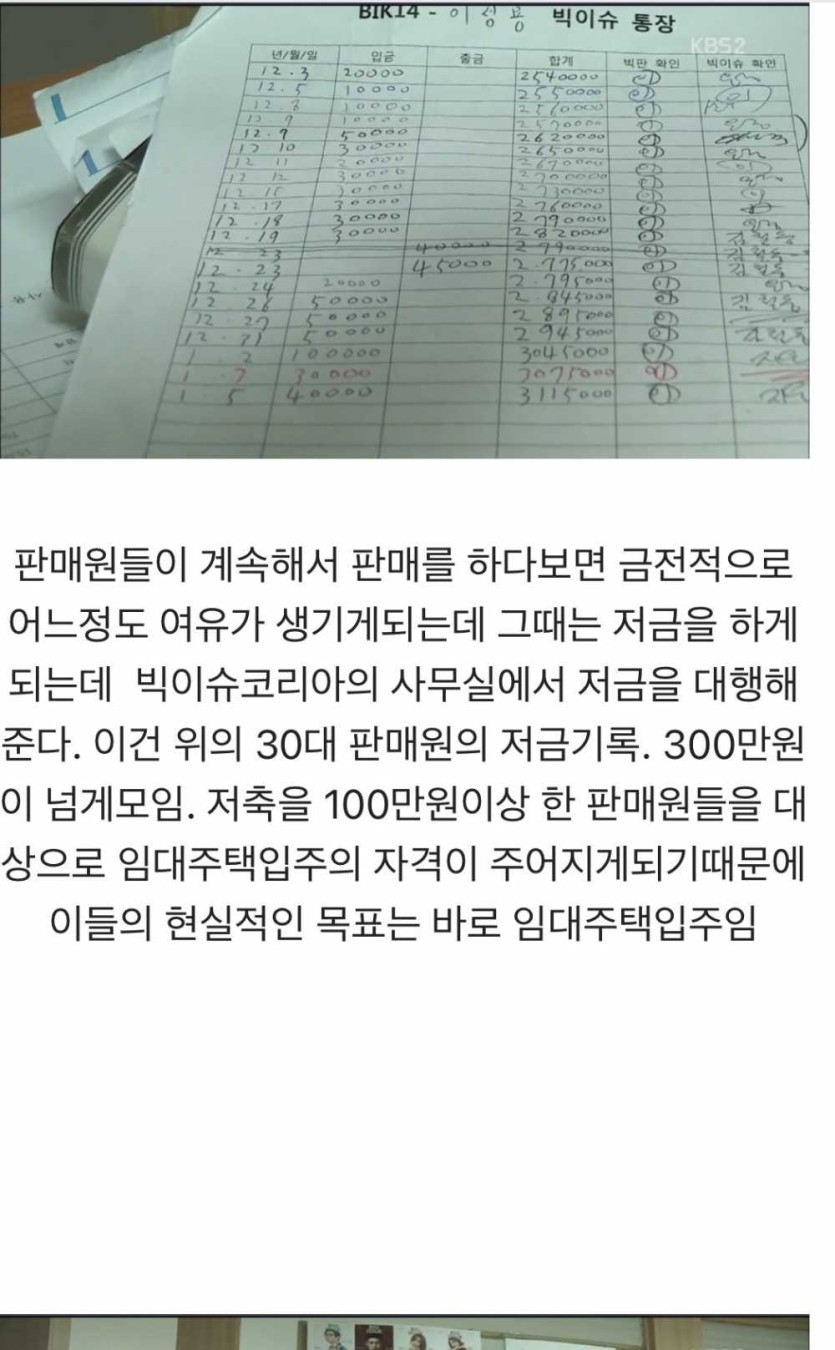 BIK14 - 이성용 빅이슈 통장
KBS2
년/월/일 입금 출금 합계 빅판 확인 빅이슈 확인
12. 3 20000 2540000
12. 5 10000 2550000
12. 8 10000 2560000
12. 9 10000 2570000
12. 9 50000 2620000
12. 10 30000 2650000
12 11 20000 2670000
12 12 30000 2700000
12 15 30000 2730000
12. 17 30000 2760000
12. 18 30000 2790000
12. 19 30000 2820000
12 23 40000 2790000
12. 23 45000 2.775000
12. 24 20000 2.795000
12. 26 50000 2.845000
12 27 50000 2895000
12. 31 50000 2945000
1 2 100000 3045000
1 7 30000 3075000
1 5 40000 3115000
판매원들이 계속해서 판매를 하다보면 금전적으로
어느정도 여유가 생기게되는데 그때는 저금을 하게
되는데 빅이슈코리아의 사무실에서 저금을 대행해
준다. 이건 위의 30대 판매원의 저금기록. 300만원
이 넘게모임. 저축을 100만원이상 한 판매원들을 대
상으로 임대주택입주의 자격이 주어지게되기때문에
이들의 현실적인 목표는 바로 임대주택입주임